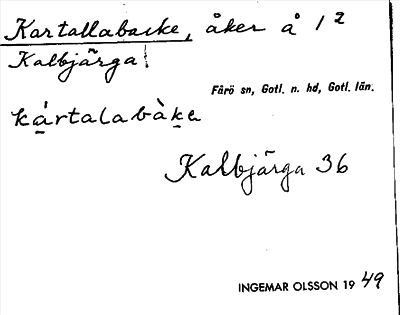 Kartallabacke, åker å 1²
Kalbjärga
Fårö sn, Gotl. n. hd, Gotl. län.
kártalabàka
Kalbjärga 36
INGEMAR OLSSON 19 49